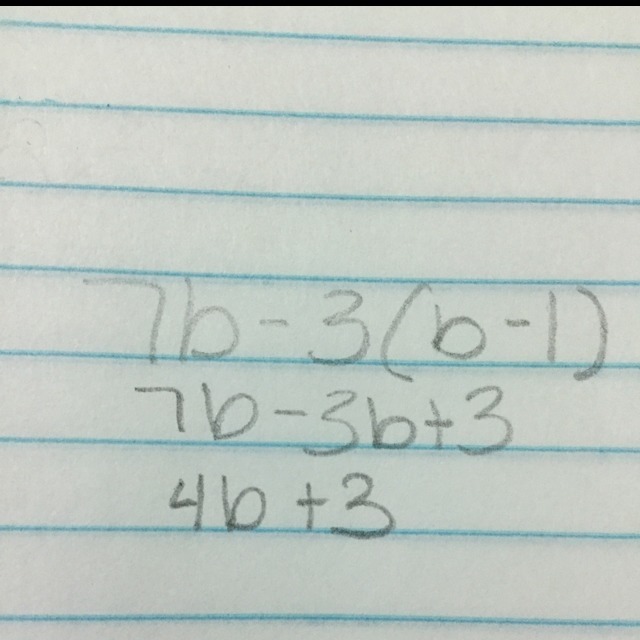 7b-3(b-1)
7b-3b+3
4b+3